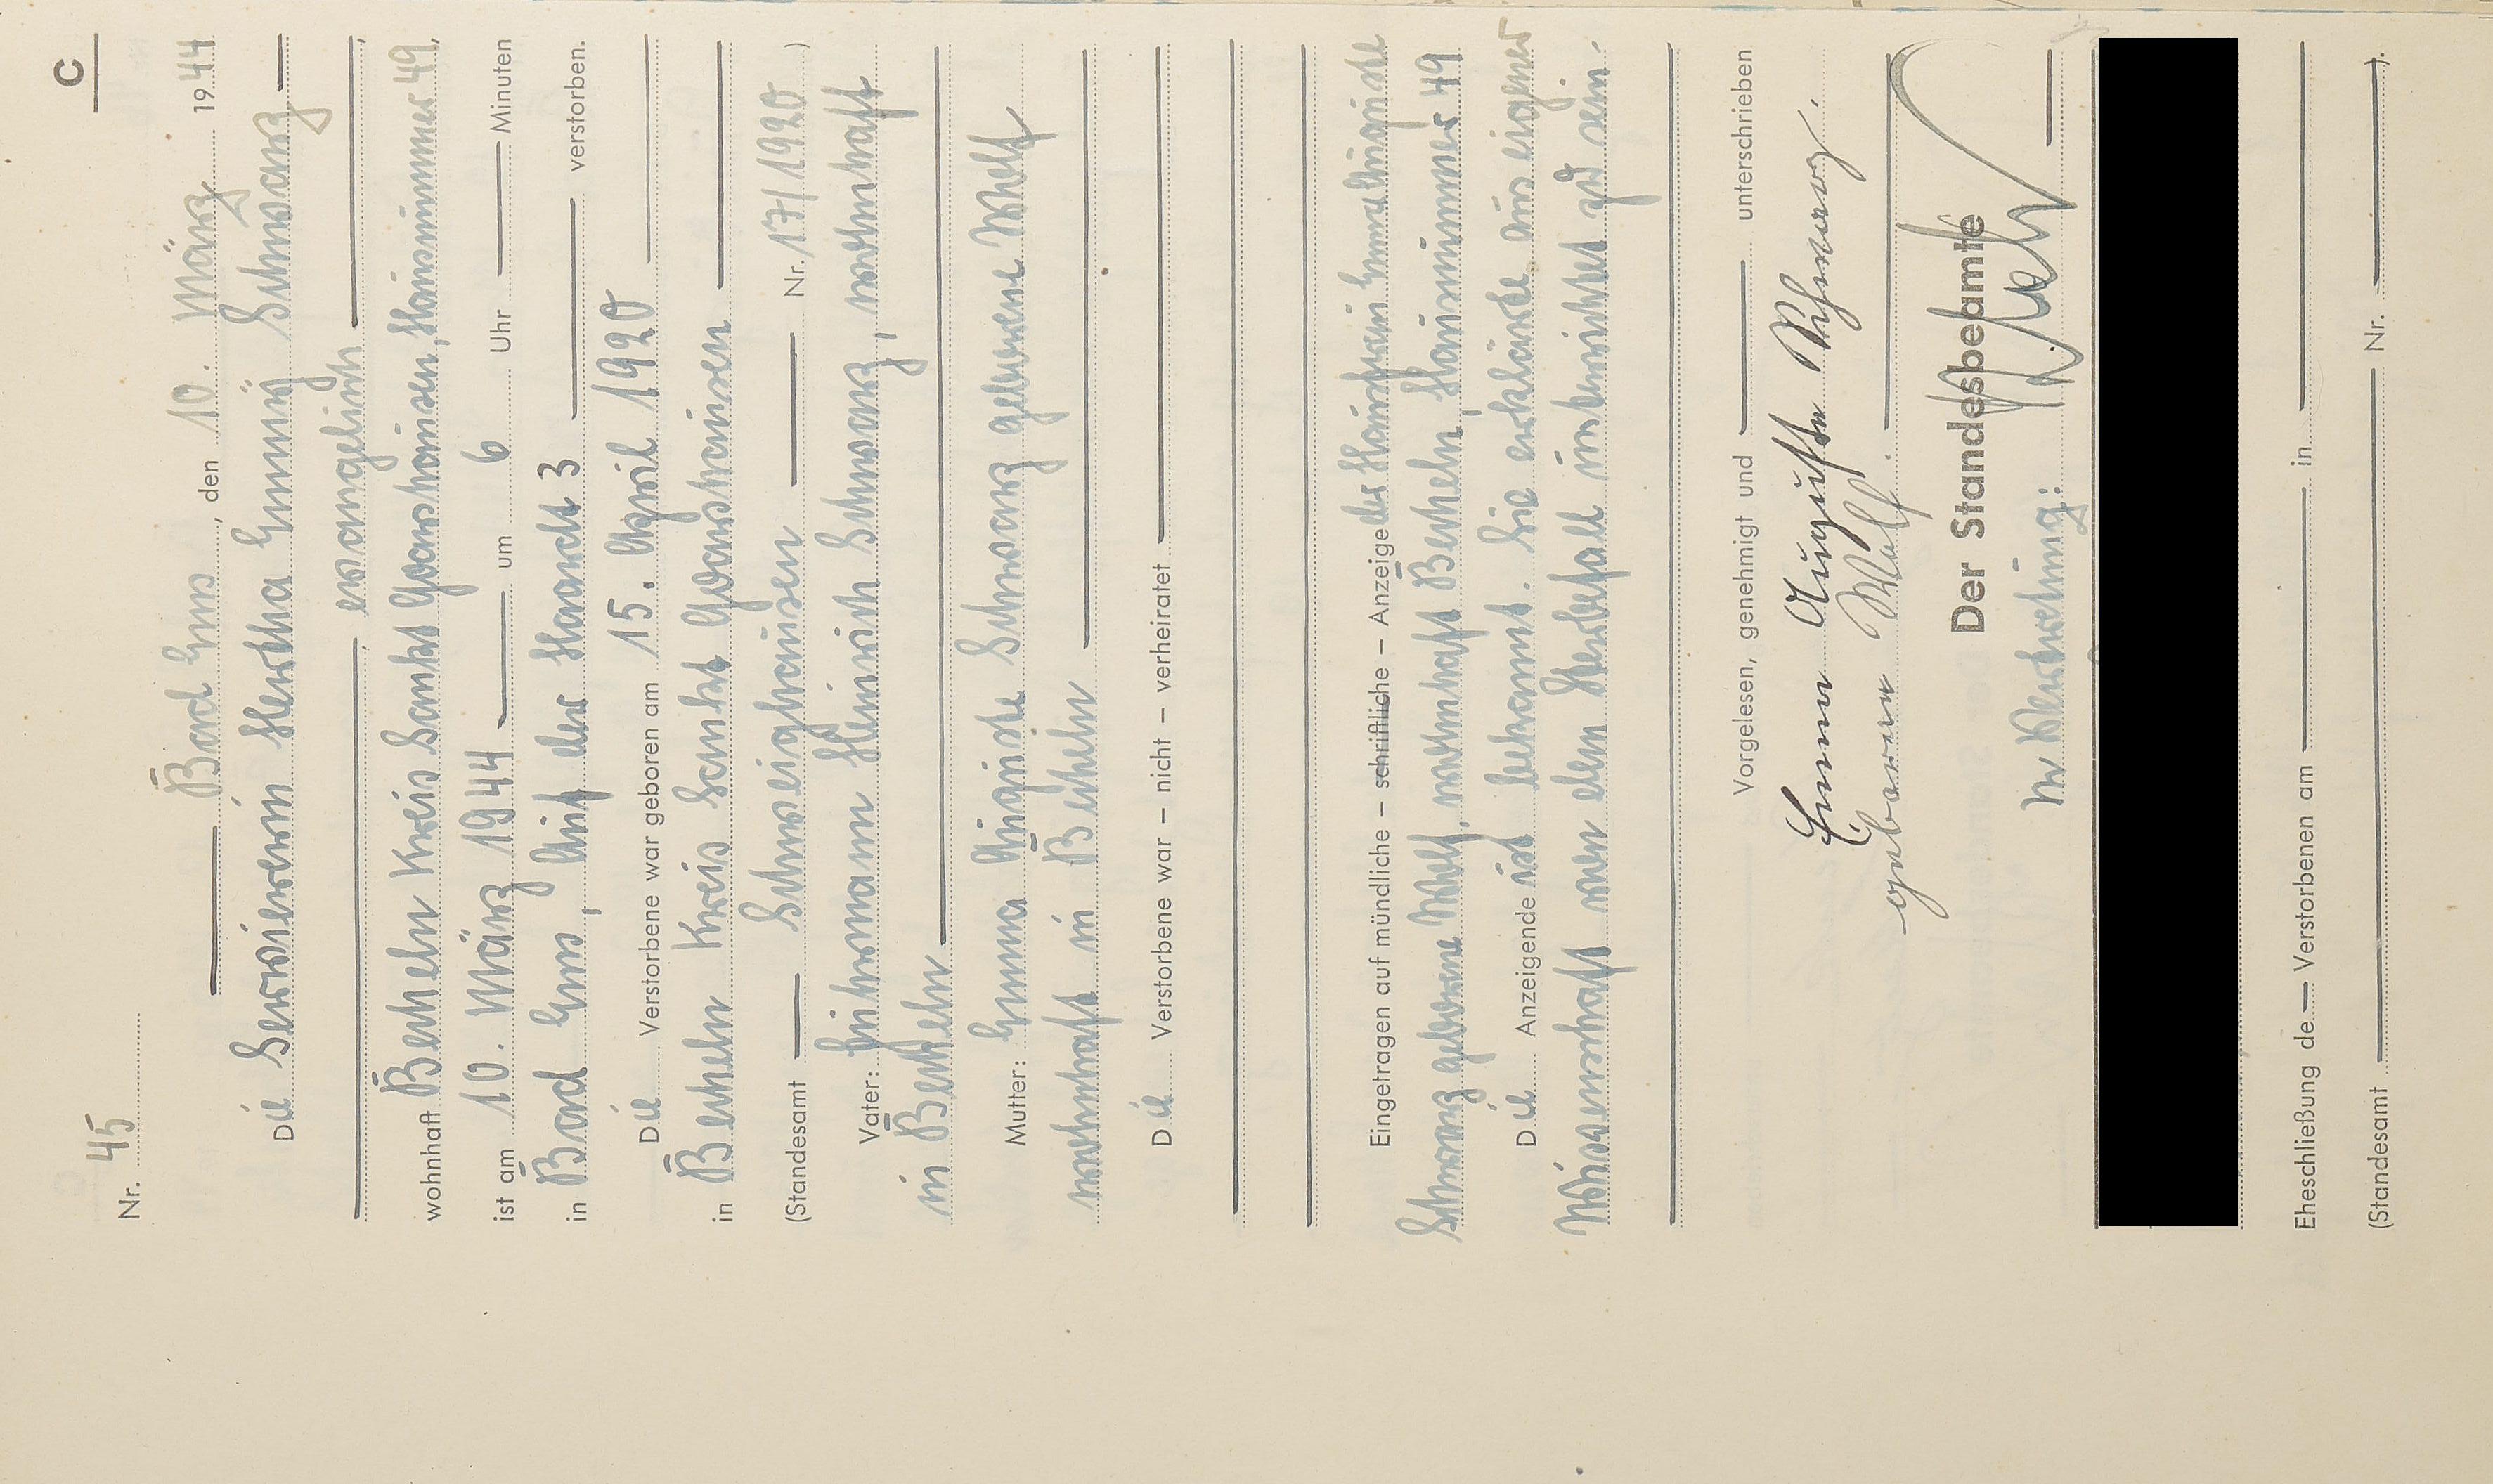 C
Nr. 45
Bad Ems, den 10. März 1944
Die Serviererin Hertha Emmÿ Schwarz
evangelisch
wohnhaft Becheln Kreis Sankt Goarshausen, Hausnummer 49,
ist am 10. März 1944 um 6 Uhr Minuten
in Bad Ems, Auf der Hardt 3 verstorben.
Die Verstorbene war geboren am 15. April 1920
in Becheln Kreis Sankt Goarshausen
(Standesamt Schweighausen Nr. 17/1920)
Vater: Fuhrmann Heinrich Schwarz, wohnhaft
in Becheln
Mutter: Emma Auguste Schwarz geborene Wolf
wohnhaft in Becheln
Die Verstorbene war – nicht – verheiratet
Eingetragen auf mündliche – schriftliche – Anzeige der Hausfrau Emma Auguste
Schwarz geborene Wolf, wohnhaft Becheln, Hausnummer 49
Die Anzeigende ist bekannt. Sie erklärte aus eigener
Wissenschaft von dem Sterbefall unterrichtet zu sein.
Vorgelesen, genehmigt und unterschrieben
Emma Auguste Schwarz,
geborene Wolf.
Der Standesbeamte
In Vertretung:
Eheschließung de Verstorbenen am in
(Standesamt Nr. ).